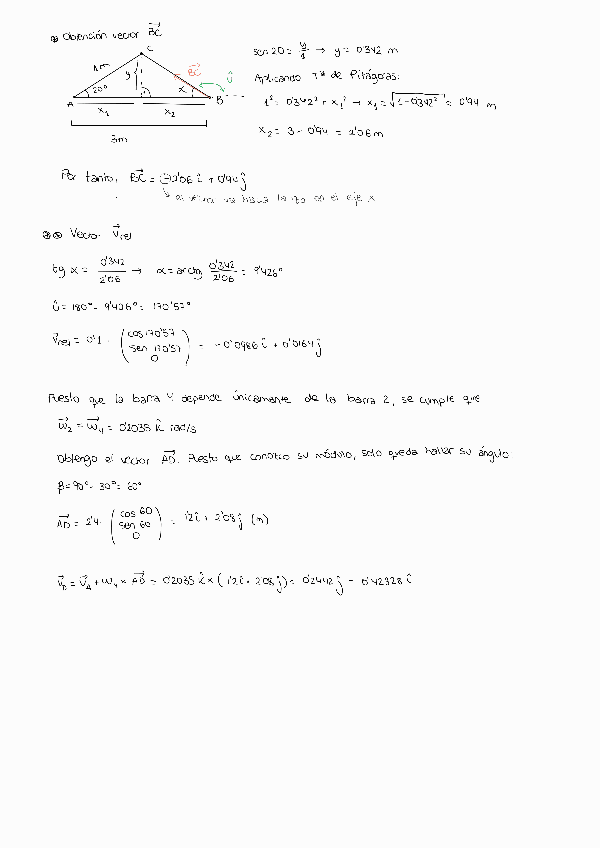 ⊛ Obtención vector BC
C
1m
y
BC
U
20°
α
A
B
x1
x2
3m
sen 20 = y/1 → y = 0'342 m
Aplicando Tª de Pitágoras:
1² = 0'342² + x1² → x1 = √(1-0'342²) = 0'94 m
x2 = 3 - 0'94 = 2'06 m
Por tanto, BC = 2'06 î + 0'94 ĵ
el eje x
⊛⊛ Vector Vrel
tg α = 0'342/2'06 → α = arctg 0'342/2'06 = 9'426°
Û = 180° - 9'426° = 170'57°
Vrel = 0'1 · (cos 170'57 sen 170'57 0) = -0'0986 î + 0'0164 ĵ
Puesto que la barra 4 depende únicamente de la barra 2, se cumple que
ω2 = ω4 = 0'2035 k̂ rad/s
Obtengo el vector AD. Puesto que conozco su módulo, solo queda hallar su ángulo
β = 90° - 30° = 60°
AD = 2'4 · (cos 60 sen 60 0) = 1'2 î + 2'08 ĵ (m)
VD = VA + ω4 × AD = 0'2035 k̂ × (1'2 î + 2'08 ĵ) = 0'2442 ĵ - 0'42328 î